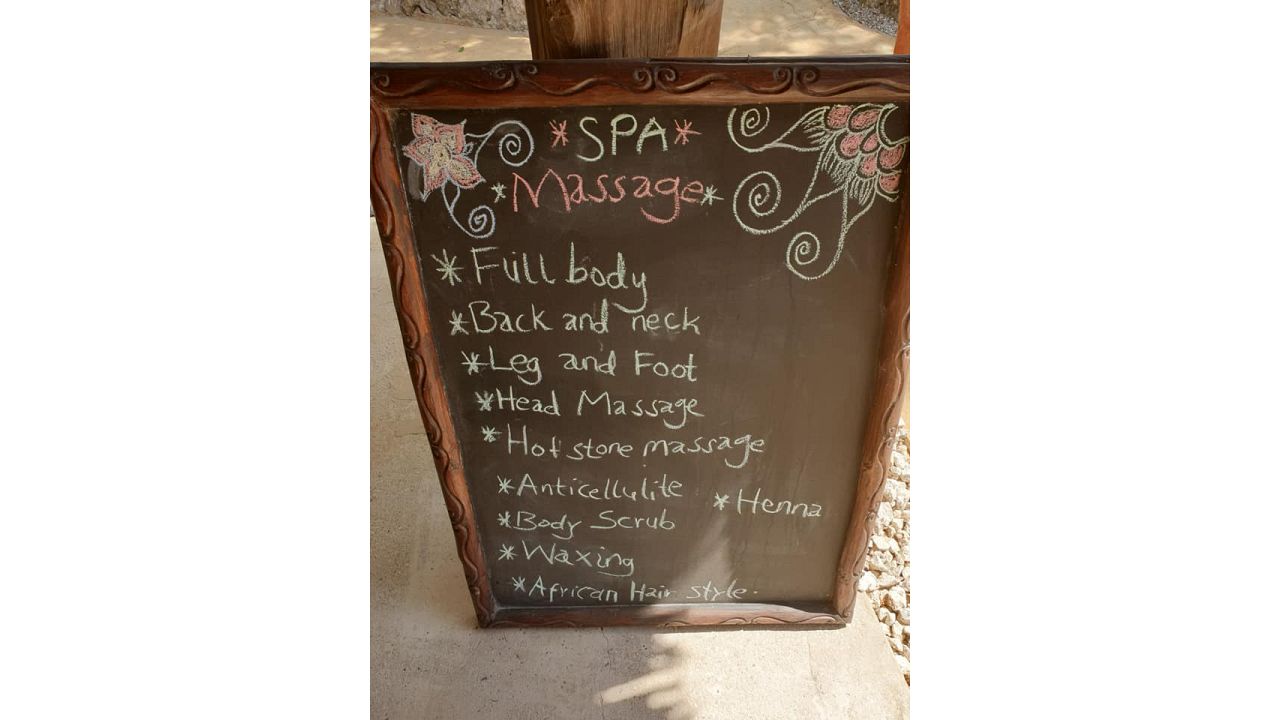 *SPA*
*Massage*
*Full body
*Back and neck
*Leg and Foot
*Head Massage
*Hot stone massage
*Anticellulite
*Henna
*Body Scrub
*Waxing
*African Hair style.